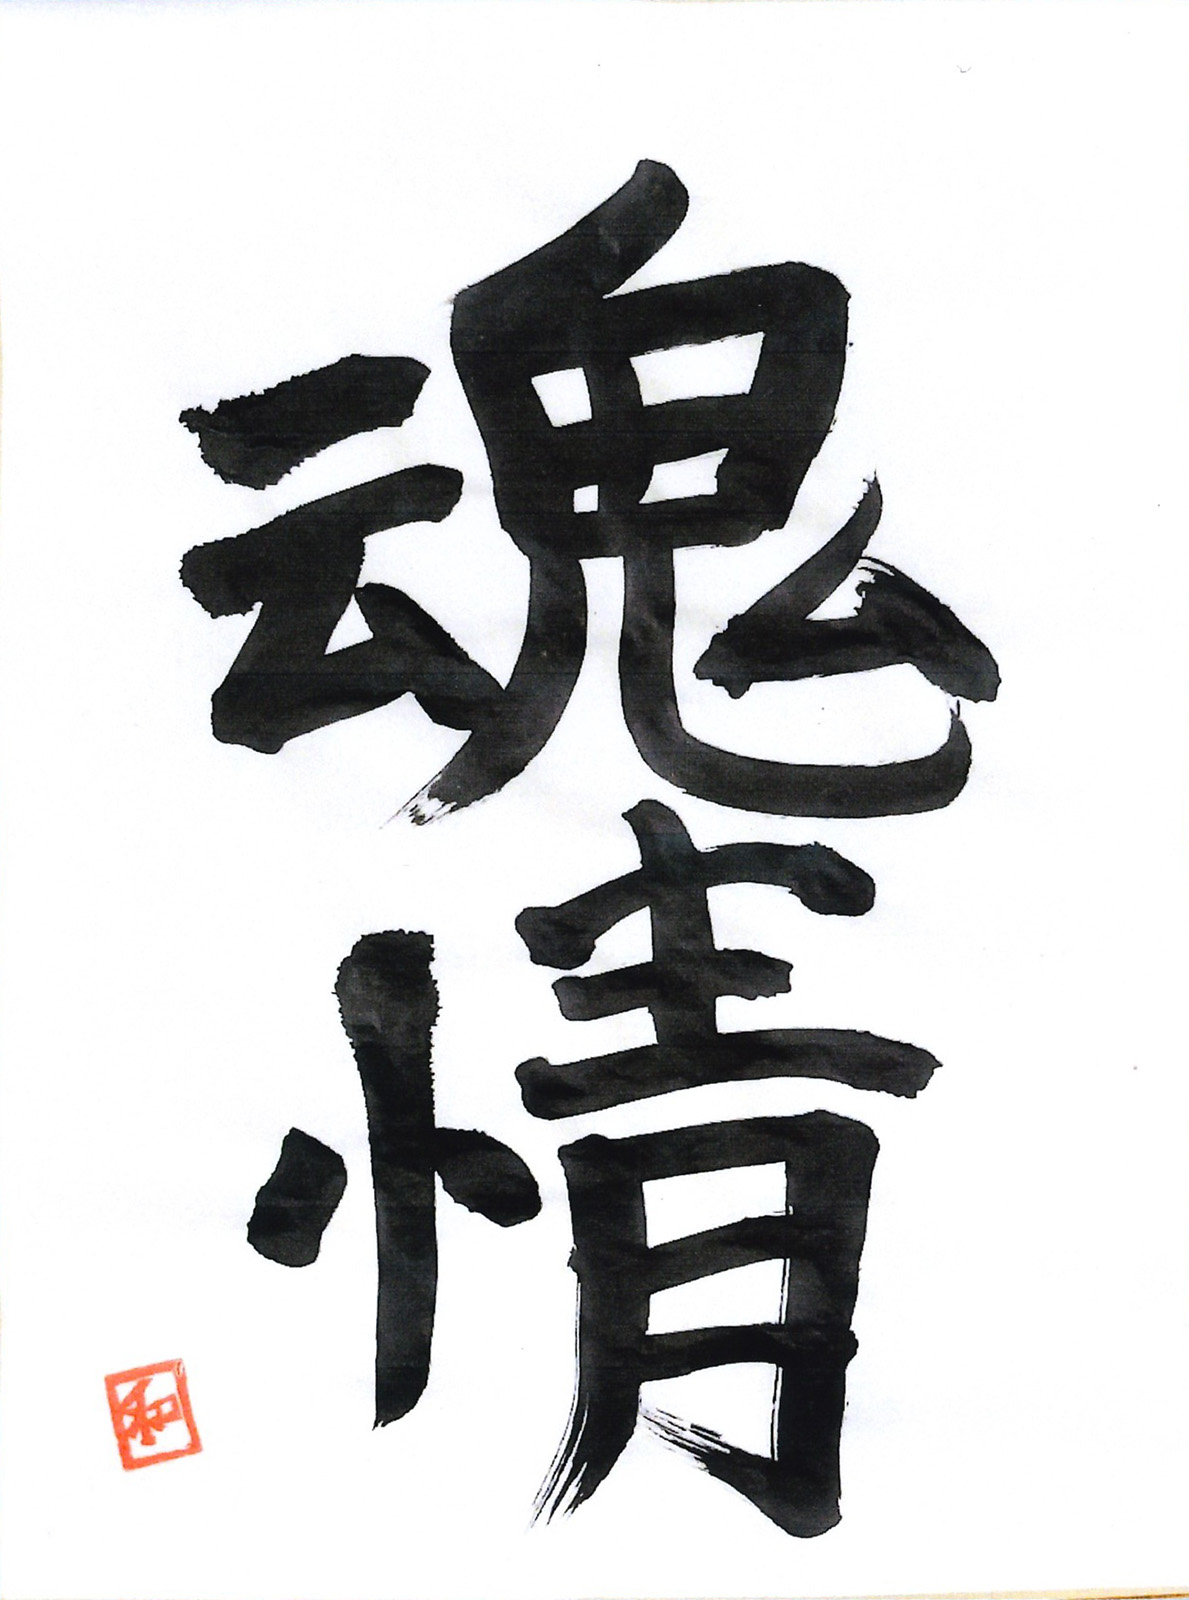 魂情
和